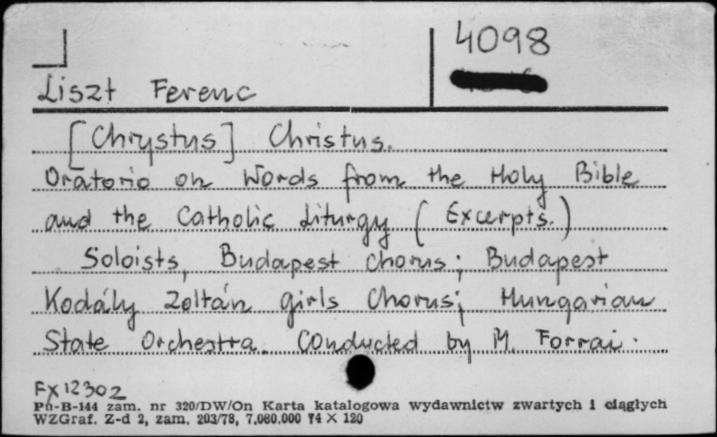 4098
Liszt Ferenc
[Chrystus] Christus.
Oratorio on Words from the Holy Bible
and the Catholic Liturgy (Excerpts.)
Soloists, Budapest chorus; Budapest
Kodály Zoltán girls Chorus; Hungarian
State Orchestra. Conducted by M. Forrai.
FX 12302
Pu-B-144 zam. nr 320/DW/On Karta katalogowa wydawnictw zwartych i ciągłych
WZGraf. Z-d 2, zam. 203/78, 7.000.000 74 X 120